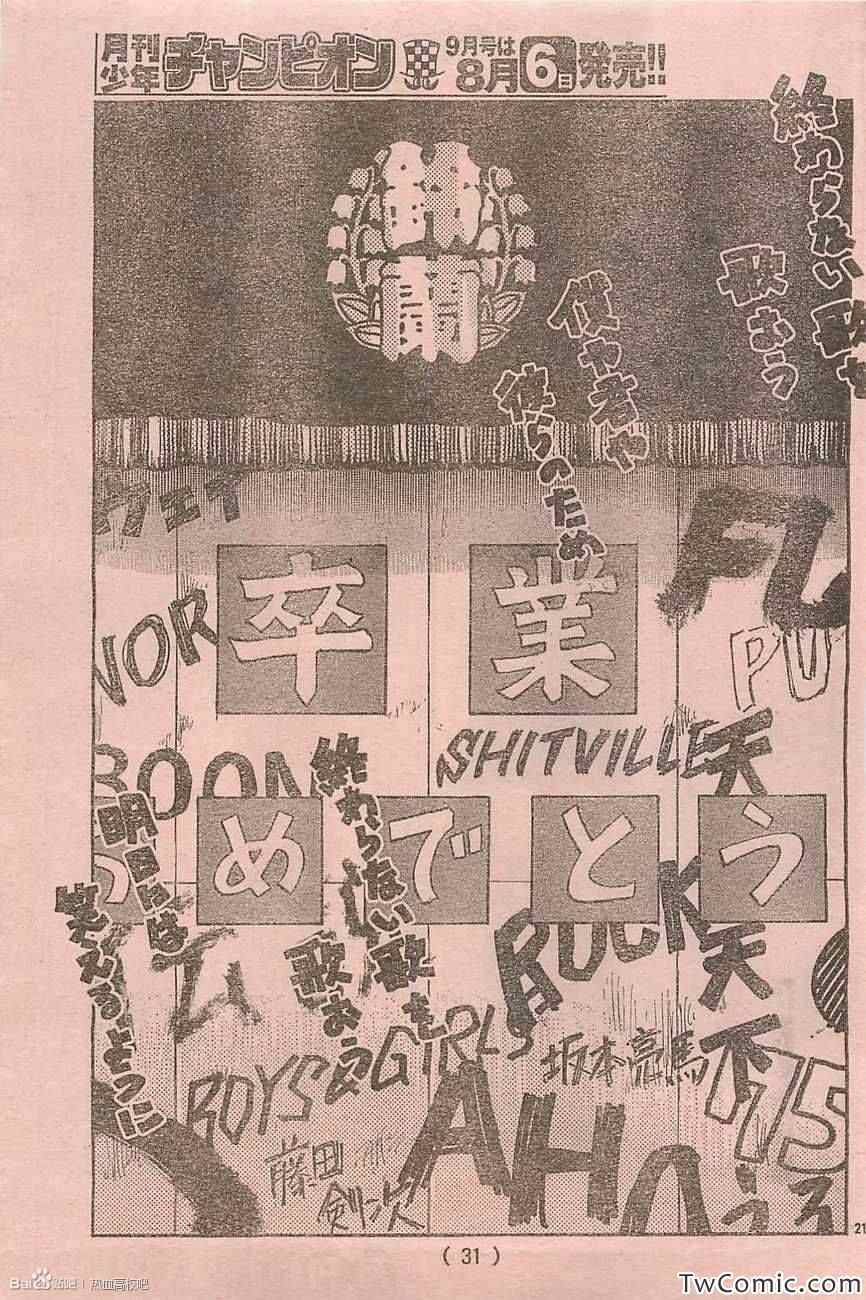 月刊
少年
チャンピオン
9月号は
8月6日発売!!
終わらない歌を
歌おう
僕や君や
彼らのため
ウェイ
FU
卒業
NOR
PU
BOON
SHITVILLE
終わらない歌を
歌おう
明日には
笑えるように
めでとう
ROCK
天
天下
BOYS&GIRLS
坂本亮馬
藤田
AHO
( 31 )
21
Baidu贴吧 | 热血高校吧
TwComic.com